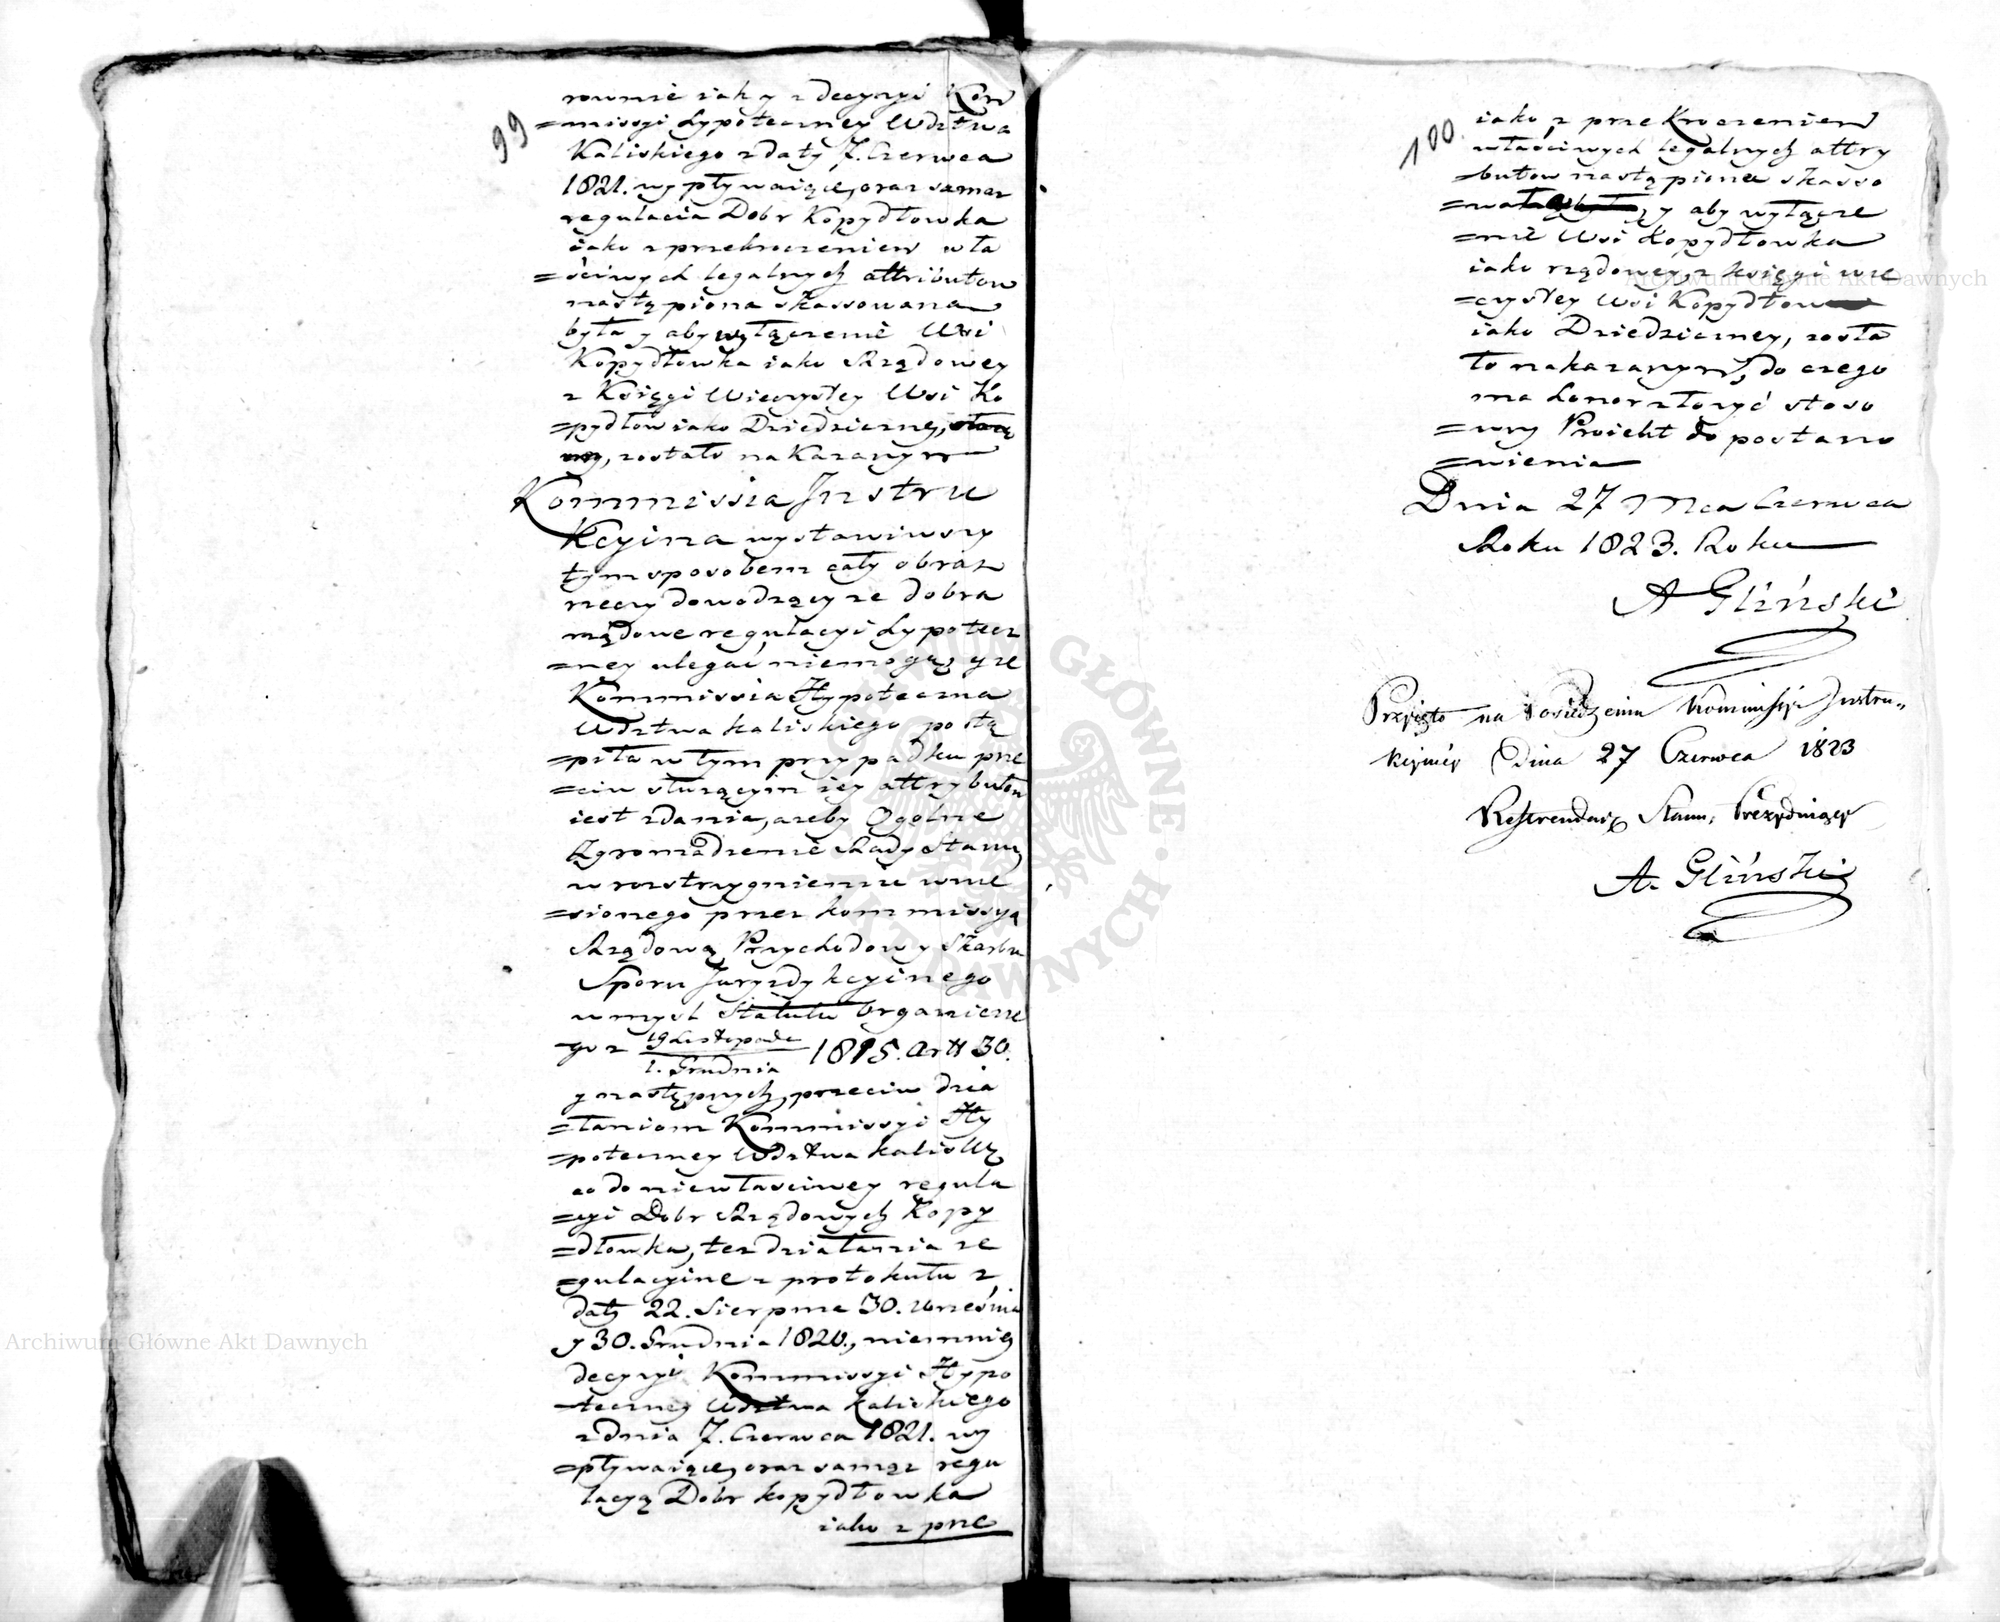 99
rownie iak y z decyzyi Kom
=missyi Hypoteczney Wdztwa
Kaliskiego z daty 7. Czerwca
1821. wypływaiące, oraz sama
regulacia Dobr Kopydłowka
iako z przekroczeniem wła
=ściwych legalnych attributow
nastąpiona skassowana
była y aby wyłączenie Wsi
Kopydłowka iako Rządowey
z Księgi Wieczystey Wsi Ko
=pydłow iako Dziedziczney,
zostało nakazanym
Kommissia Instru
Kcyina wystawiwszy
tym sposobem cały obraz
rzeczy dowodzący ze dobra
rządowe regulacyi Hypotecz
=ney ulegać niemogą, y ze
Kommissia Hypoteczna
Wdztwa Kaliskiego postą
=piła w tym przypadku prze
=ciw służącym iey attrybutom
iest zdania, azeby Ogolne
Zgromadzenie Rady Stanu,
w rozstrzygnieniu wnie
=sionego przez kommissyą
Rządową Przychodow y Skarbu
Sporu Juryzdykcyinego
w mysl Statutu Organiczne
=go z 19 Listopada 1815. Artt 30.
1. Grudnia
y następnych, przeciw dzia
=łaniom Kommissyi Hy
=poteczney Wdztwa Kalisk:
co do niewłasciwey regula
=cyi Dobr Rządowych Kopy
=dłowka, tez działania re
=gulacyine z protokułu z
daty 22. Sierpnia 30. wrześnie
y 30. Grudnia 1820., niemniey
decyzyi Kommissyi Hypo
=teczney Wdztwa Kaliskiego
z dnia 7. Czerwca 1821. wy
=pływaiące, oraz samąz regu
lacyą Dobr Kopydłowka
iako z prze
100.
iako z przekroczeniem
właściwych legalnych attry
=butow nastąpiona skasso
y aby wyłącze
=nie Wsi Kopydłowka
iako rządowey, z księgi wie
=czystey Wsi Kopydłow
iako Dziedziczney, zosta
ło nakazanym, do czego
ma honor złozyć stoso
=wny Proiekt do postano
=wienia
Dnia 27 Mca Czerwca
Roku 1823. Roku
A Gliński
Przyięto na Posiedzeniu Kommissyi Instru=
kcyiney Dnia 27 Czerwca 1823
Referendarz Stanu, Prezyduiący
A. Gliński
Archiwum Główne Akt Dawnych
Archiwum Główne Akt Dawnych
ARCHIWUM GŁÓWNE AKT DAWNYCH